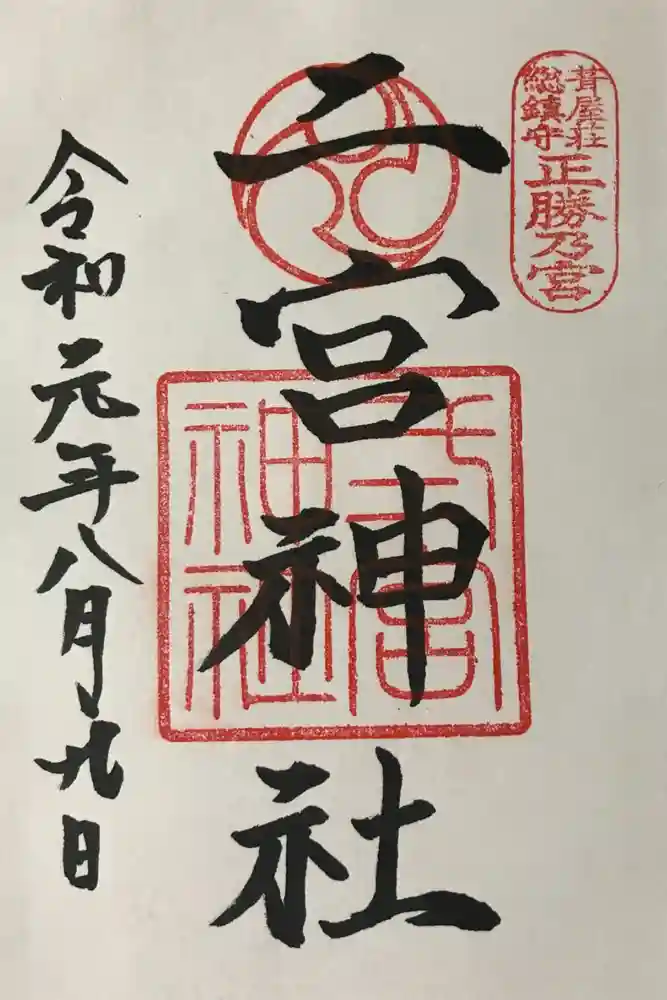 葺屋荘
総鎮守
正勝乃宮
二宮神社
弍宮
神社
令和元年八月九日